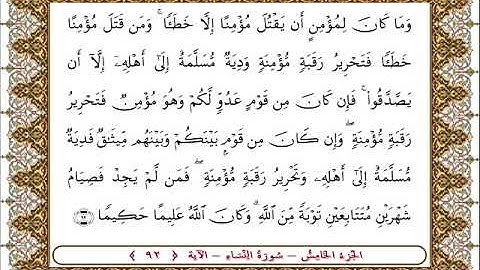 وَمَا كَانَ لِمُؤْمِنٍ أَن يَقْتُلَ مُؤْمِنًا إِلَّا خَطَـًٔا ۚ وَمَن قَتَلَ مُؤْمِنًا
خَطَـًٔا فَتَحْرِيرُ رَقَبَةٍ مُّؤْمِنَةٍ وَدِيَةٌ مُّسَلَّمَةٌ إِلَىٰٓ أَهْلِهِۦٓ إِلَّآ أَن
يَصَّدَّقُوا۟ ۚ فَإِن كَانَ مِن قَوْمٍ عَدُوٍّ لَّكُمْ وَهُوَ مُؤْمِنٌ فَتَحْرِيرُ
رَقَبَةٍ مُّؤْمِنَةٍ ۖ وَإِن كَانَ مِن قَوْمٍۭ بَيْنَكُمْ وَبَيْنَهُم مِّيثَـٰقٌ فَدِيَةٌ
مُّسَلَّمَةٌ إِلَىٰٓ أَهْلِهِۦ وَتَحْرِيرُ رَقَبَةٍ مُّؤْمِنَةٍ ۖ فَمَن لَّمْ يَجِدْ فَصِيَامُ
شَهْرَيْنِ مُتَتَابِعَيْنِ تَوْبَةً مِّنَ ٱللَّهِ ۗ وَكَانَ ٱللَّهُ عَلِيمًا حَكِيمًا ﴿٩٢﴾
الجزء الخامس - سورة النساء - الآية ﴿ ٩٢ ﴾